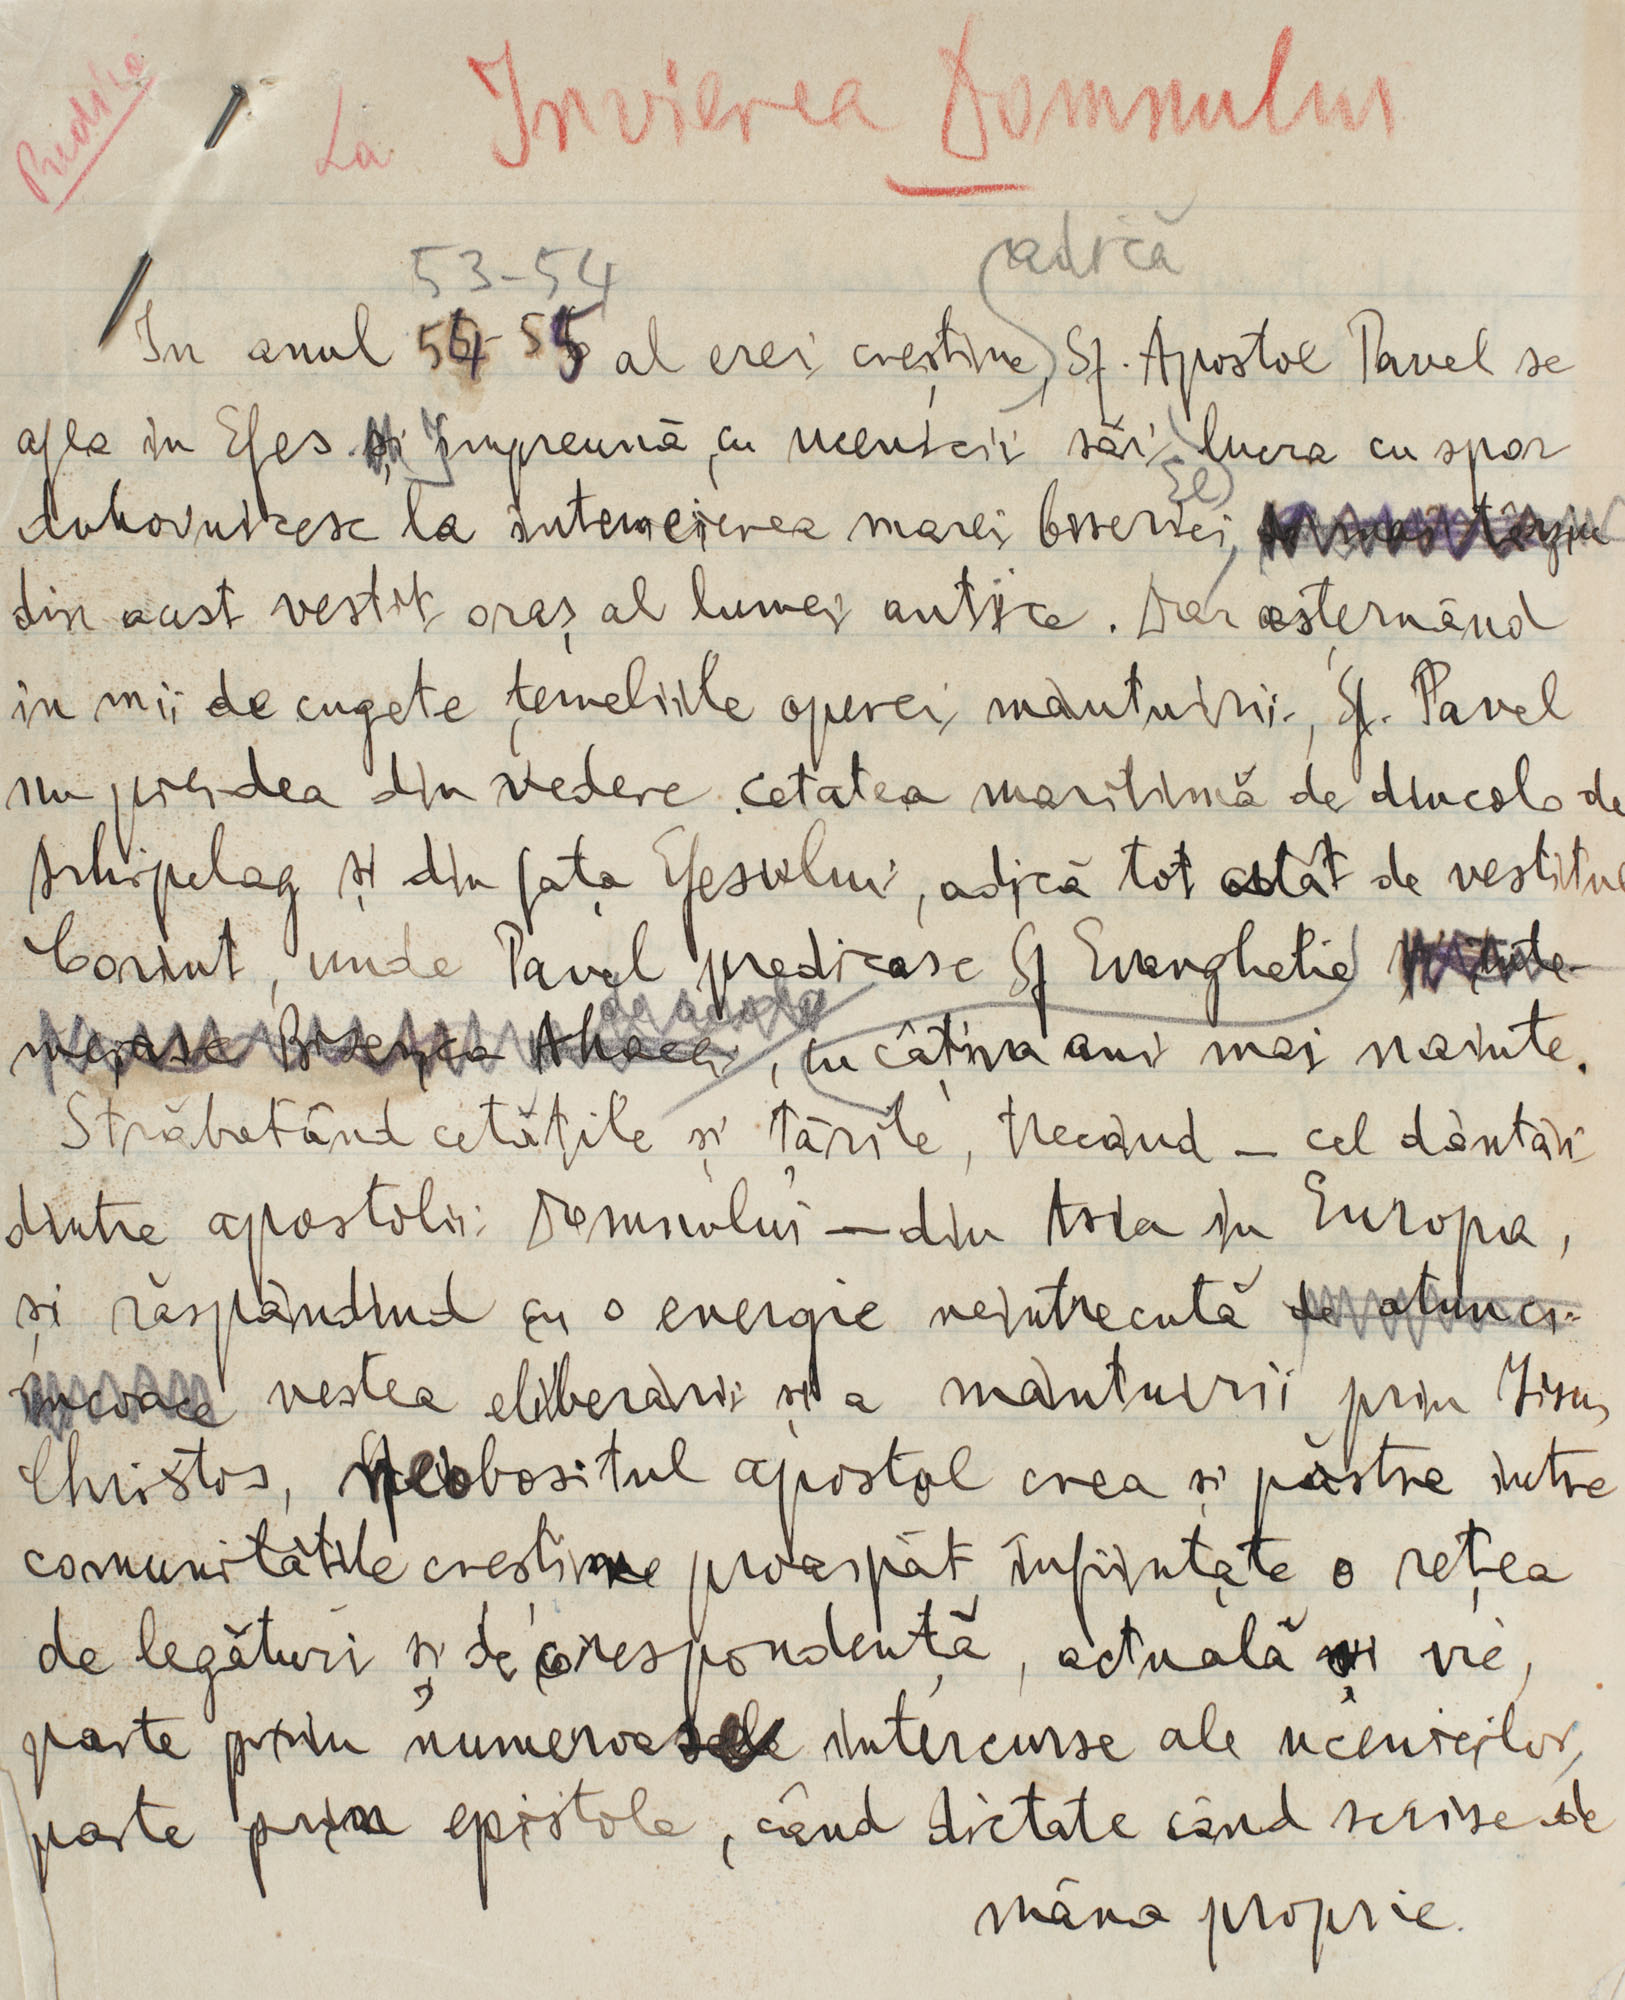 Predică
La Invierea Domnului
53-54
adică
In anul 54-55 al erei creștine, Sf. Apostol Pavel se
afla in Efes și impreună cu ucenicii săi lucra cu spor
El
duhovnicesc la intemeierea marei biserici, mai târziu
din acest vestit oraș al lumei antice. Dar așternând
in mii de cugete temeliile operei mântuirii, Sf. Pavel
nu pierdea din vedere cetatea maritimă de dincolo de
Arhipelag și din fața Efesului, adică tot atât de vestitul
Corint, unde Pavel predicase Sf Evanghelie și inte-
de acolo
meiase Biserica Ahaei, cu câțiva ani mai nainte.
Străbatând cetățile și țările, trecând — cel dântâi
dintre apostolii Domnului — din Asia in Europa,
și răspândind cu o energie neintrecută de atunci-
incoace vestea eliberării și a mântuirii prin Iisus
Christos, Neobositul apostol crea și păstra intre
comunitățile creștine proaspăt înființate o rețea
de legături și de corespondență, actuală și vie,
parte prin numeroasele intercurse ale ucenicilor,
parte prin epistole, când dictate când scrise de
mâna proprie.